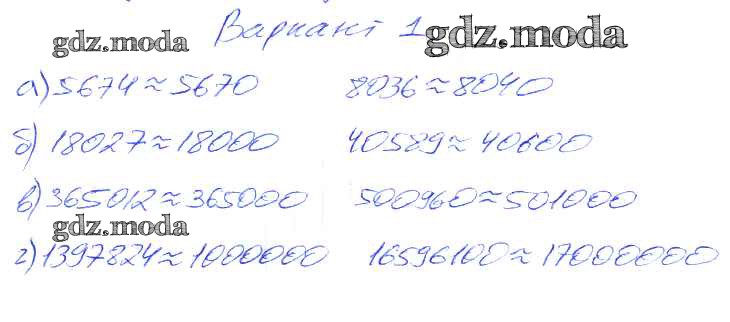 Вариант 1
gdz.moda gdz.moda
а) 5674 ≈ 5670 8036 ≈ 8040
б) 18027 ≈ 18000 40589 ≈ 40600
в) 365012 ≈ 365000 500960 ≈ 501000
gdz.moda
г) 1397824 ≈ 1000000 16596100 ≈ 17000000